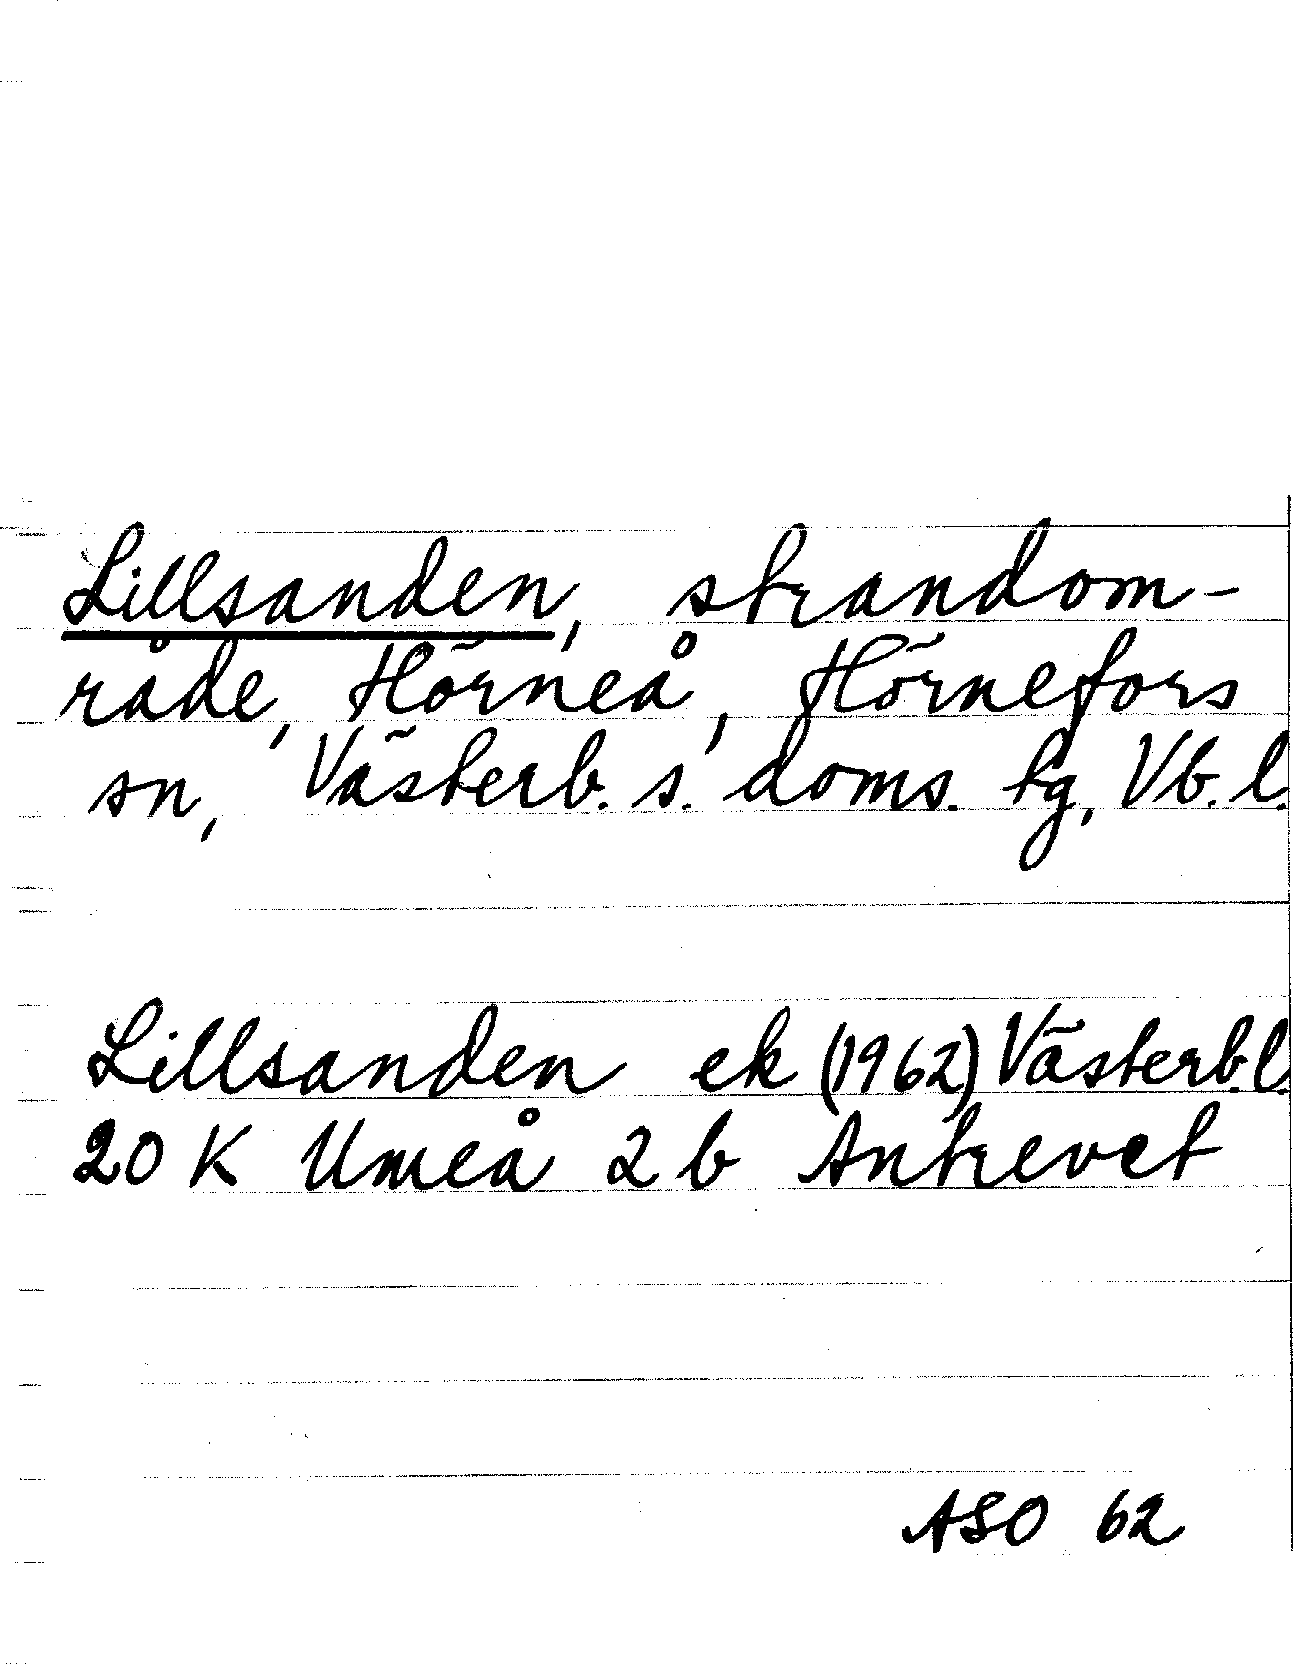 Lillsanden, strandom-
råde, Hörneå, Hörnefors
sn, Västerb. s. doms. tg, Vb. l.
Lillsanden ek (1962) Västerb. l.
20 K Umeå 2 b Antrevet
ASO 62